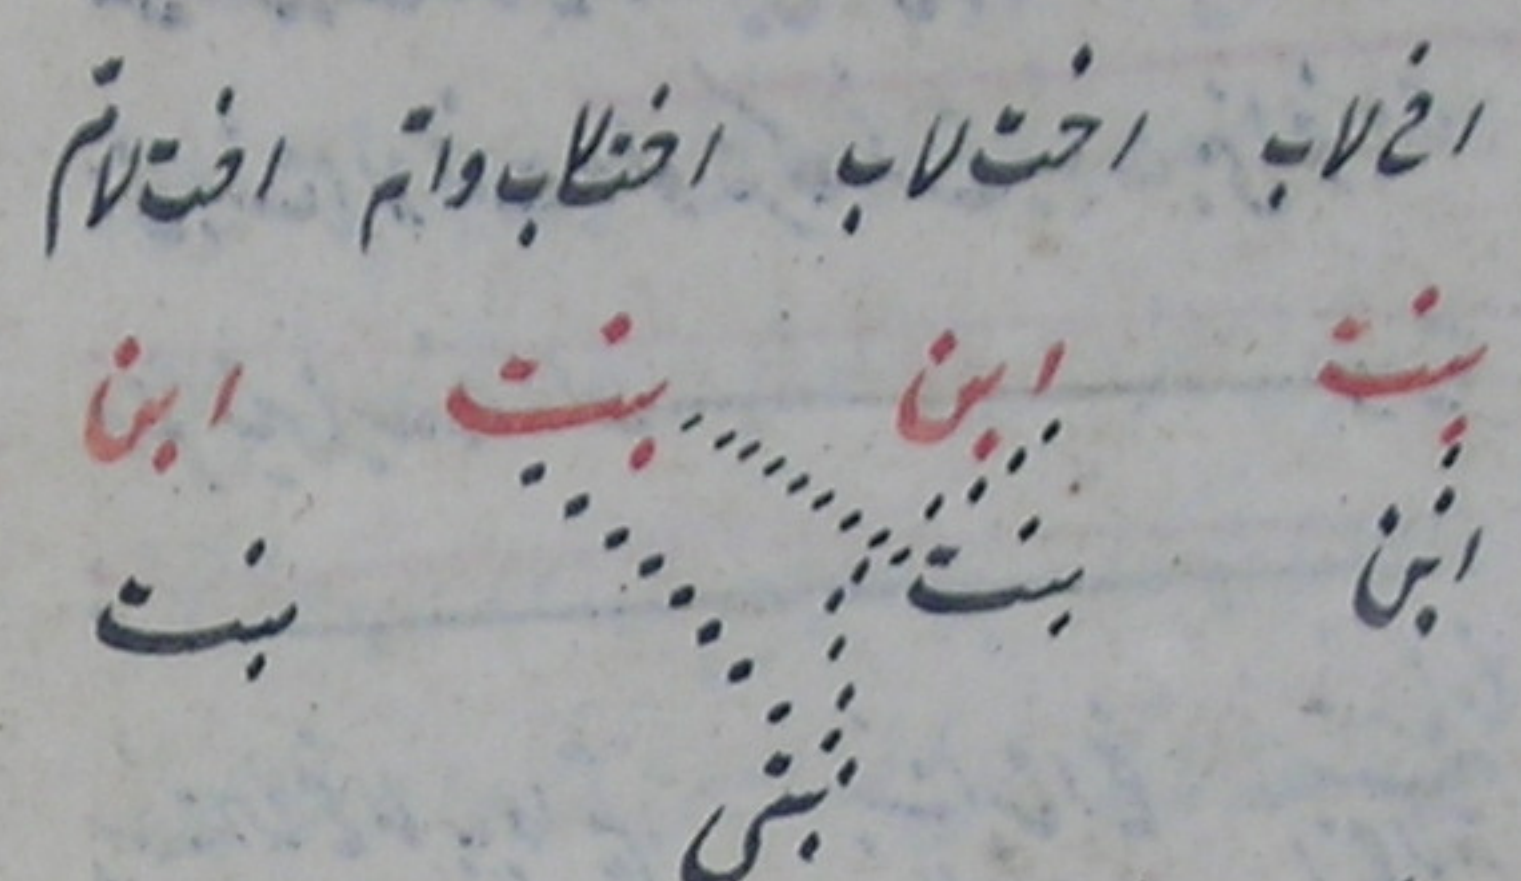 اخ لاب اخت لاب اخت لاب وام اخت لام
بنت ابن بنت ابن
ابن بنت بنت
بنتی